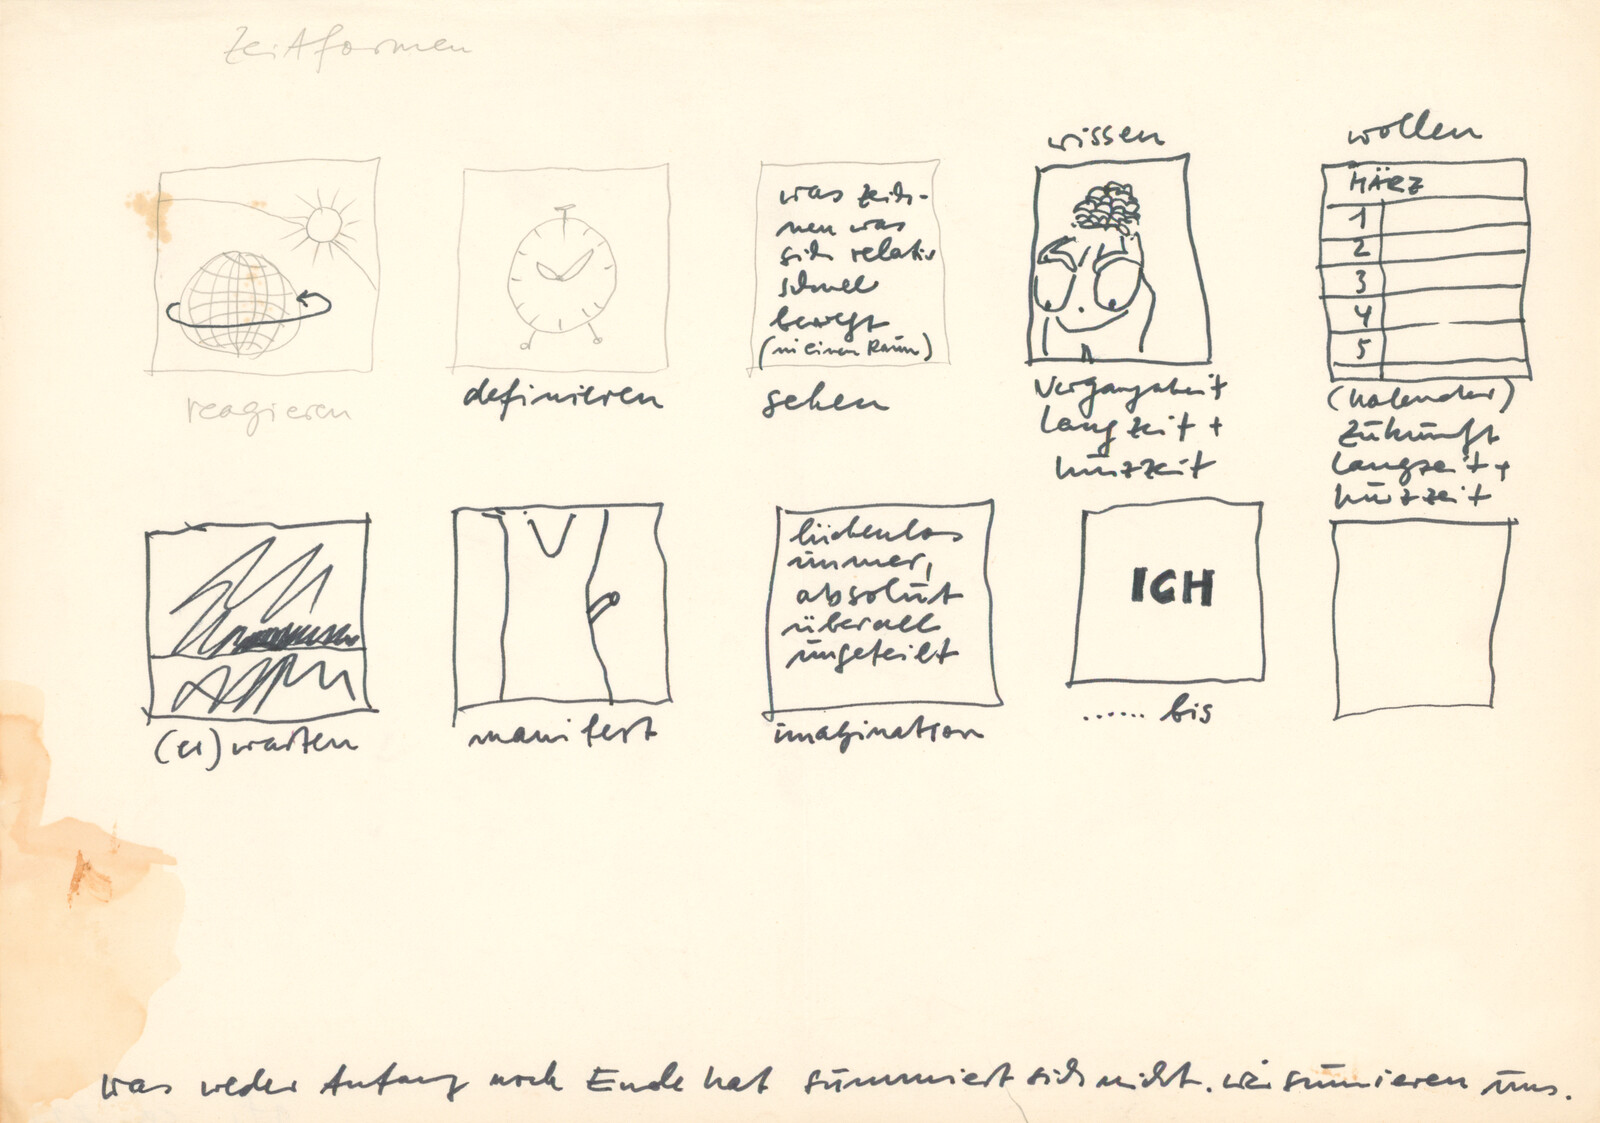 Zeitformen
reagieren
definieren
was zeich-
nen was
sich relativ
schnell
bewegt
(in einen Raum)
sehen
wissen
Vergangenheit
langzeit +
kurzzeit
wollen
MÄRZ
1
2
3
4
5
(Kalender)
Zukunft
langzeit +
kurzzeit
(er) warten
manifest
lückenlos
immer,
absolut
überall
ungeteilt
imagination
ICH
...... bis
was weder Anfang noch Ende hat summiert sich nicht. wir summieren uns.